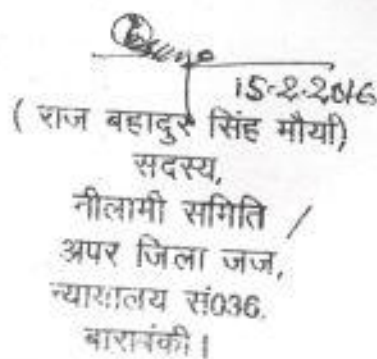 15-2-2016
( राज बहादुर सिंह मौर्या)
सदस्य,
नीलामी समिति /
अपर जिला जज,
न्यायालय सं036.
बाराबंकी।